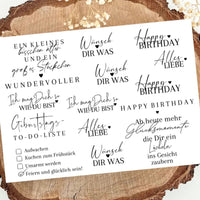 EIN KLEINES
bisschen älter
UND EIN
großes Stückchen
WUNDERVOLLER
Wünsch
DIR WAS
Happy
BIRTHDAY
Ich mag Dich so
WIE DU BIST
Alles
LIEBE
Happy
BIRTHDAY
Ich mag Dich so
WIE DU BIST
Wünsch
DIR WAS
HAPPY BIRTHDAY
Geburtstags-
TO-DO-LISTE
Aufwachen
Kuchen zum Frühstück
Umarmt werden
Feiern und glücklich sein!
Alles
LIEBE
Wünsch
DIR WAS
Ab heute mehr
Glücksmomente
die Dir ein
Lächeln
ins Gesicht
zaubern